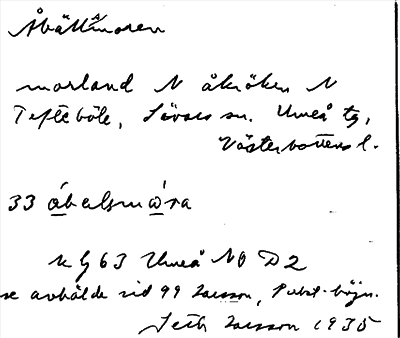 Åbällmoren
morland N åkröken N
Tefteböle, Sävars sn. Umeå tg,
Västerbottens l.
33 åbalsmòra
k G 63 Umeå NO D2
se avhålde sid 99 Larsson, Subst.-böjn.
Seth Larsson 1935